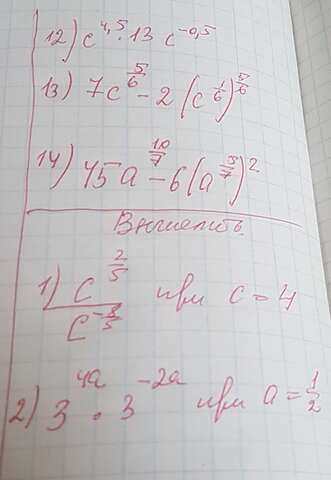 12) c^4,5 · 13 c^-0,5
13) 7c^5/6 - 2 (c^1/6)^5/6
14) 45a^10/7 - 6(a^5/7)^2
Вычислить
1) c^2/5 / c^-8/5 при c = 4
2) 3^4a · 3^-2a при a = 1/2